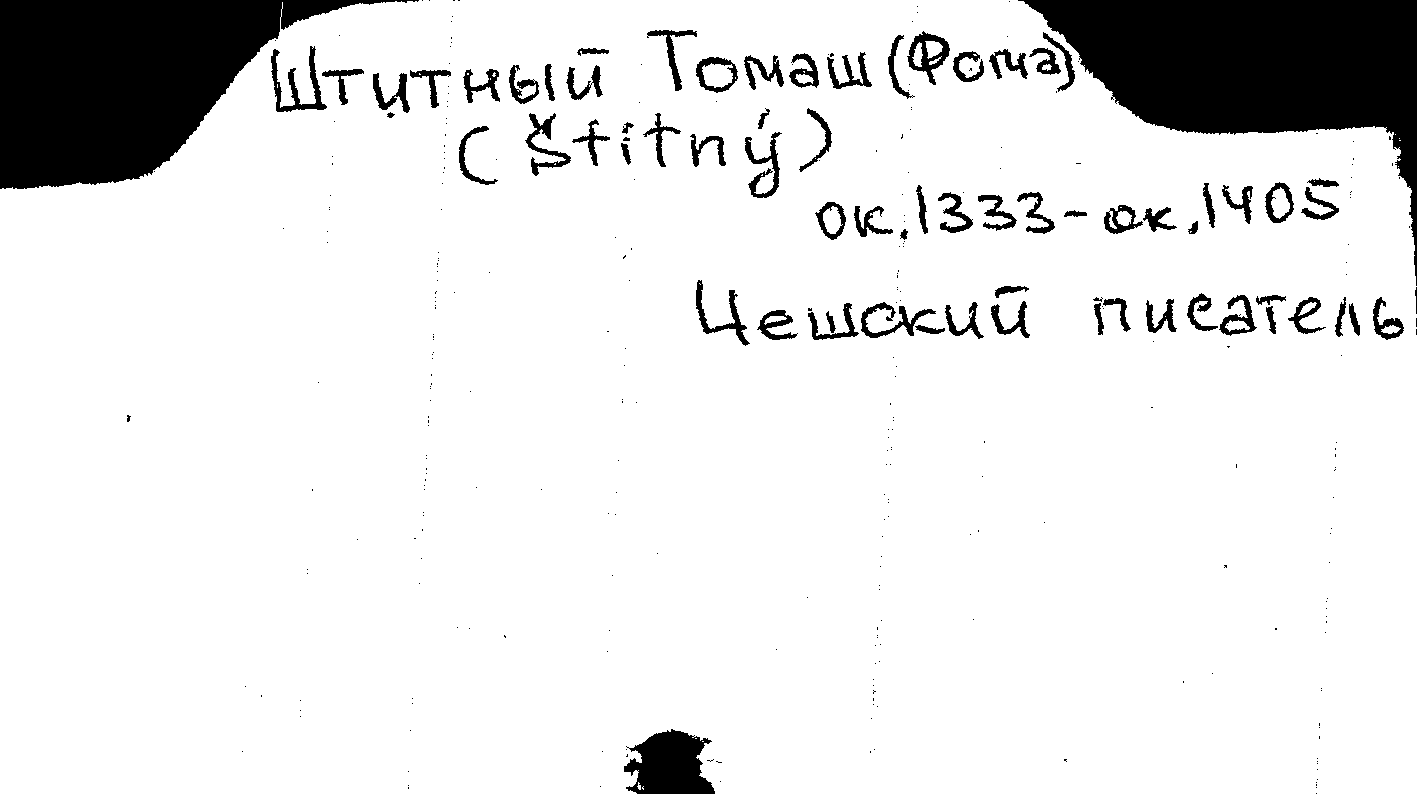 Штитный Томаш (Фома)
(Štítný)
ок. 1333 - ок. 1405
Чешский писатель